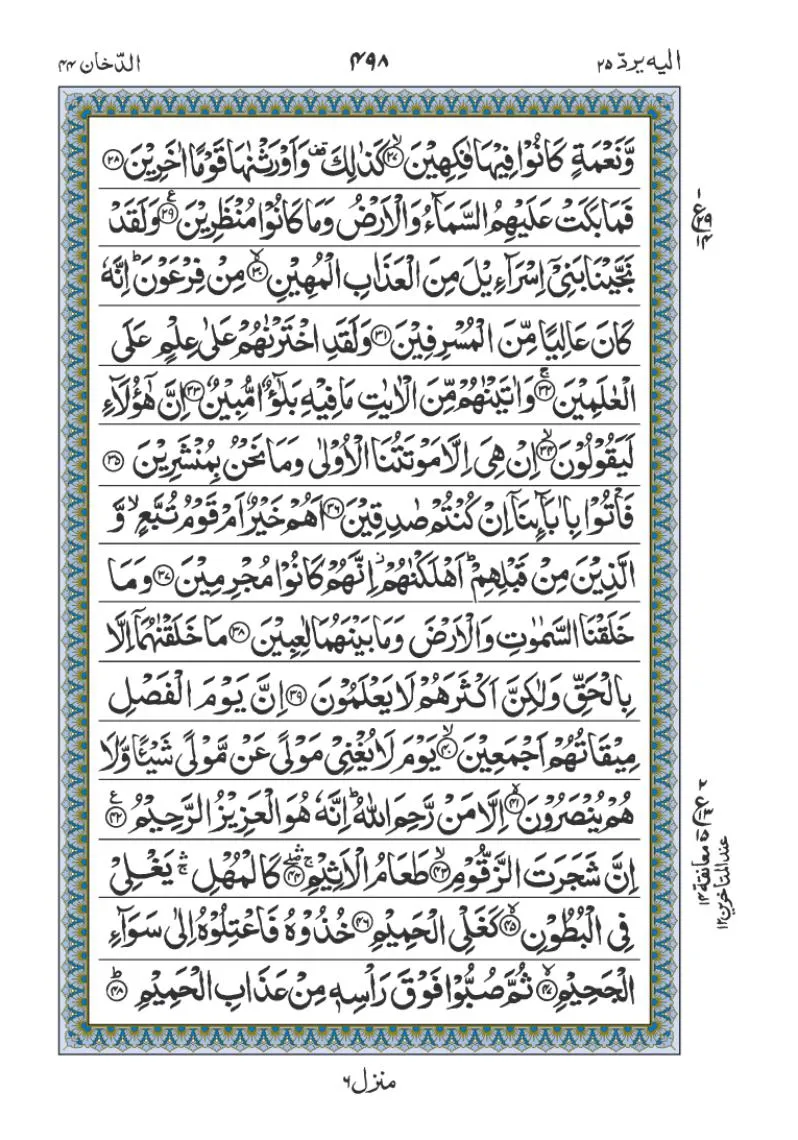 الیه یردّ ۲۵
۴۹۸
الدّخان ۴۴
وَّنَعْمَةٍ كَانُوْا فِيْهَا فٰكِهِيْنَ ۙ‏﴿۲۷﴾ كَذٰلِكَ ۫ وَاَوْرَثْنٰهَا قَوْمًا اٰخَرِيْنَ ﴿۲۸﴾
فَمَا بَكَتْ عَلَيْهِمُ السَّمَآءُ وَالْاَرْضُ وَمَا كَانُوْا مُنْظَرِيْنَ ﴿۲۹﴾ ع وَلَقَدْ
نَجَّيْنَا بَنِيْۤ اِسْرَآءِيْلَ مِنَ الْعَذَابِ الْمُهِيْنِ ۙ﴿۳۰﴾ مِنْ فِرْعَوْنَ ؕ اِنَّهٗ
كَانَ عَالِيًا مِّنَ الْمُسْرِفِيْنَ ﴿۳۱﴾ وَلَقَدِ اخْتَرْنٰهُمْ عَلٰى عِلْمٍ عَلَى
الْعٰلَمِيْنَ ۚ﴿۳۲﴾ وَاٰتَيْنٰهُمْ مِّنَ الْاٰيٰتِ مَا فِيْهِ بَلٰٓؤٌا مُّبِيْنٌ ﴿۳۳﴾ اِنَّ هٰٓؤُلَآءِ
لَيَقُوْلُوْنَ ۙ﴿۳۴﴾ اِنْ هِىَ اِلَّا مَوْتَتُنَا الْاُوْلٰى وَمَا نَحْنُ بِمُنْشَرِيْنَ ﴿۳۵﴾
فَاْتُوْا بِاٰبَآئِنَاۤ اِنْ كُنْتُمْ صٰدِقِيْنَ ﴿۳۶﴾ اَهُمْ خَيْرٌ اَمْ قَوْمُ تُبَّعٍ ۙ وَّ
الَّذِيْنَ مِنْ قَبْلِهِمْ ؕ اَهْلَكْنٰهُمْ ۫ اِنَّهُمْ كَانُوْا مُجْرِمِيْنَ ﴿۳۷﴾ وَمَا
خَلَقْنَا السَّمٰوٰتِ وَالْاَرْضَ وَمَا بَيْنَهُمَا لٰعِبِيْنَ ﴿۳۸﴾ مَا خَلَقْنٰهُمَاۤ اِلَّا
بِالْحَقِّ وَلٰكِنَّ اَكْثَرَهُمْ لَا يَعْلَمُوْنَ ﴿۳۹﴾ اِنَّ يَوْمَ الْفَصْلِ
مِيْقَاتُهُمْ اَجْمَعِيْنَ ۙ﴿۴۰﴾ يَوْمَ لَا يُغْنِىْ مَوْلًى عَنْ مَّوْلًى شَيْــًٔا وَّلَا
هُمْ يُنْصَرُوْنَ ۙ﴿۴۱﴾ اِلَّا مَنْ رَّحِمَ اللّٰهُ ؕ اِنَّهٗ هُوَ الْعَزِيْزُ الرَّحِيْمُ ﴿۴۲﴾ ع
اِنَّ شَجَرَتَ الزَّقُّوْمِ ۙ﴿۴۳﴾ طَعَامُ الْاَثِيْمِ ۛۚۖ﴿۴۴﴾ كَالْمُهْلِ ۛۚ يَغْلِىْ
فِى الْبُطُوْنِ ۙ﴿۴۵﴾ كَغَلْىِ الْحَمِيْمِ ﴿۴۶﴾ خُذُوْهُ فَاعْتِلُوْهُ اِلٰى سَوَآءِ
الْجَحِيْمِ ۖ﴿۴۷﴾ ثُمَّ صُبُّوْا فَوْقَ رَاْسِهٖ مِنْ عَذَابِ الْحَمِيْمِ ؕ﴿۴۸﴾
معانقة ۱۴
عند المتأخرین ۱۲
منزل ۶